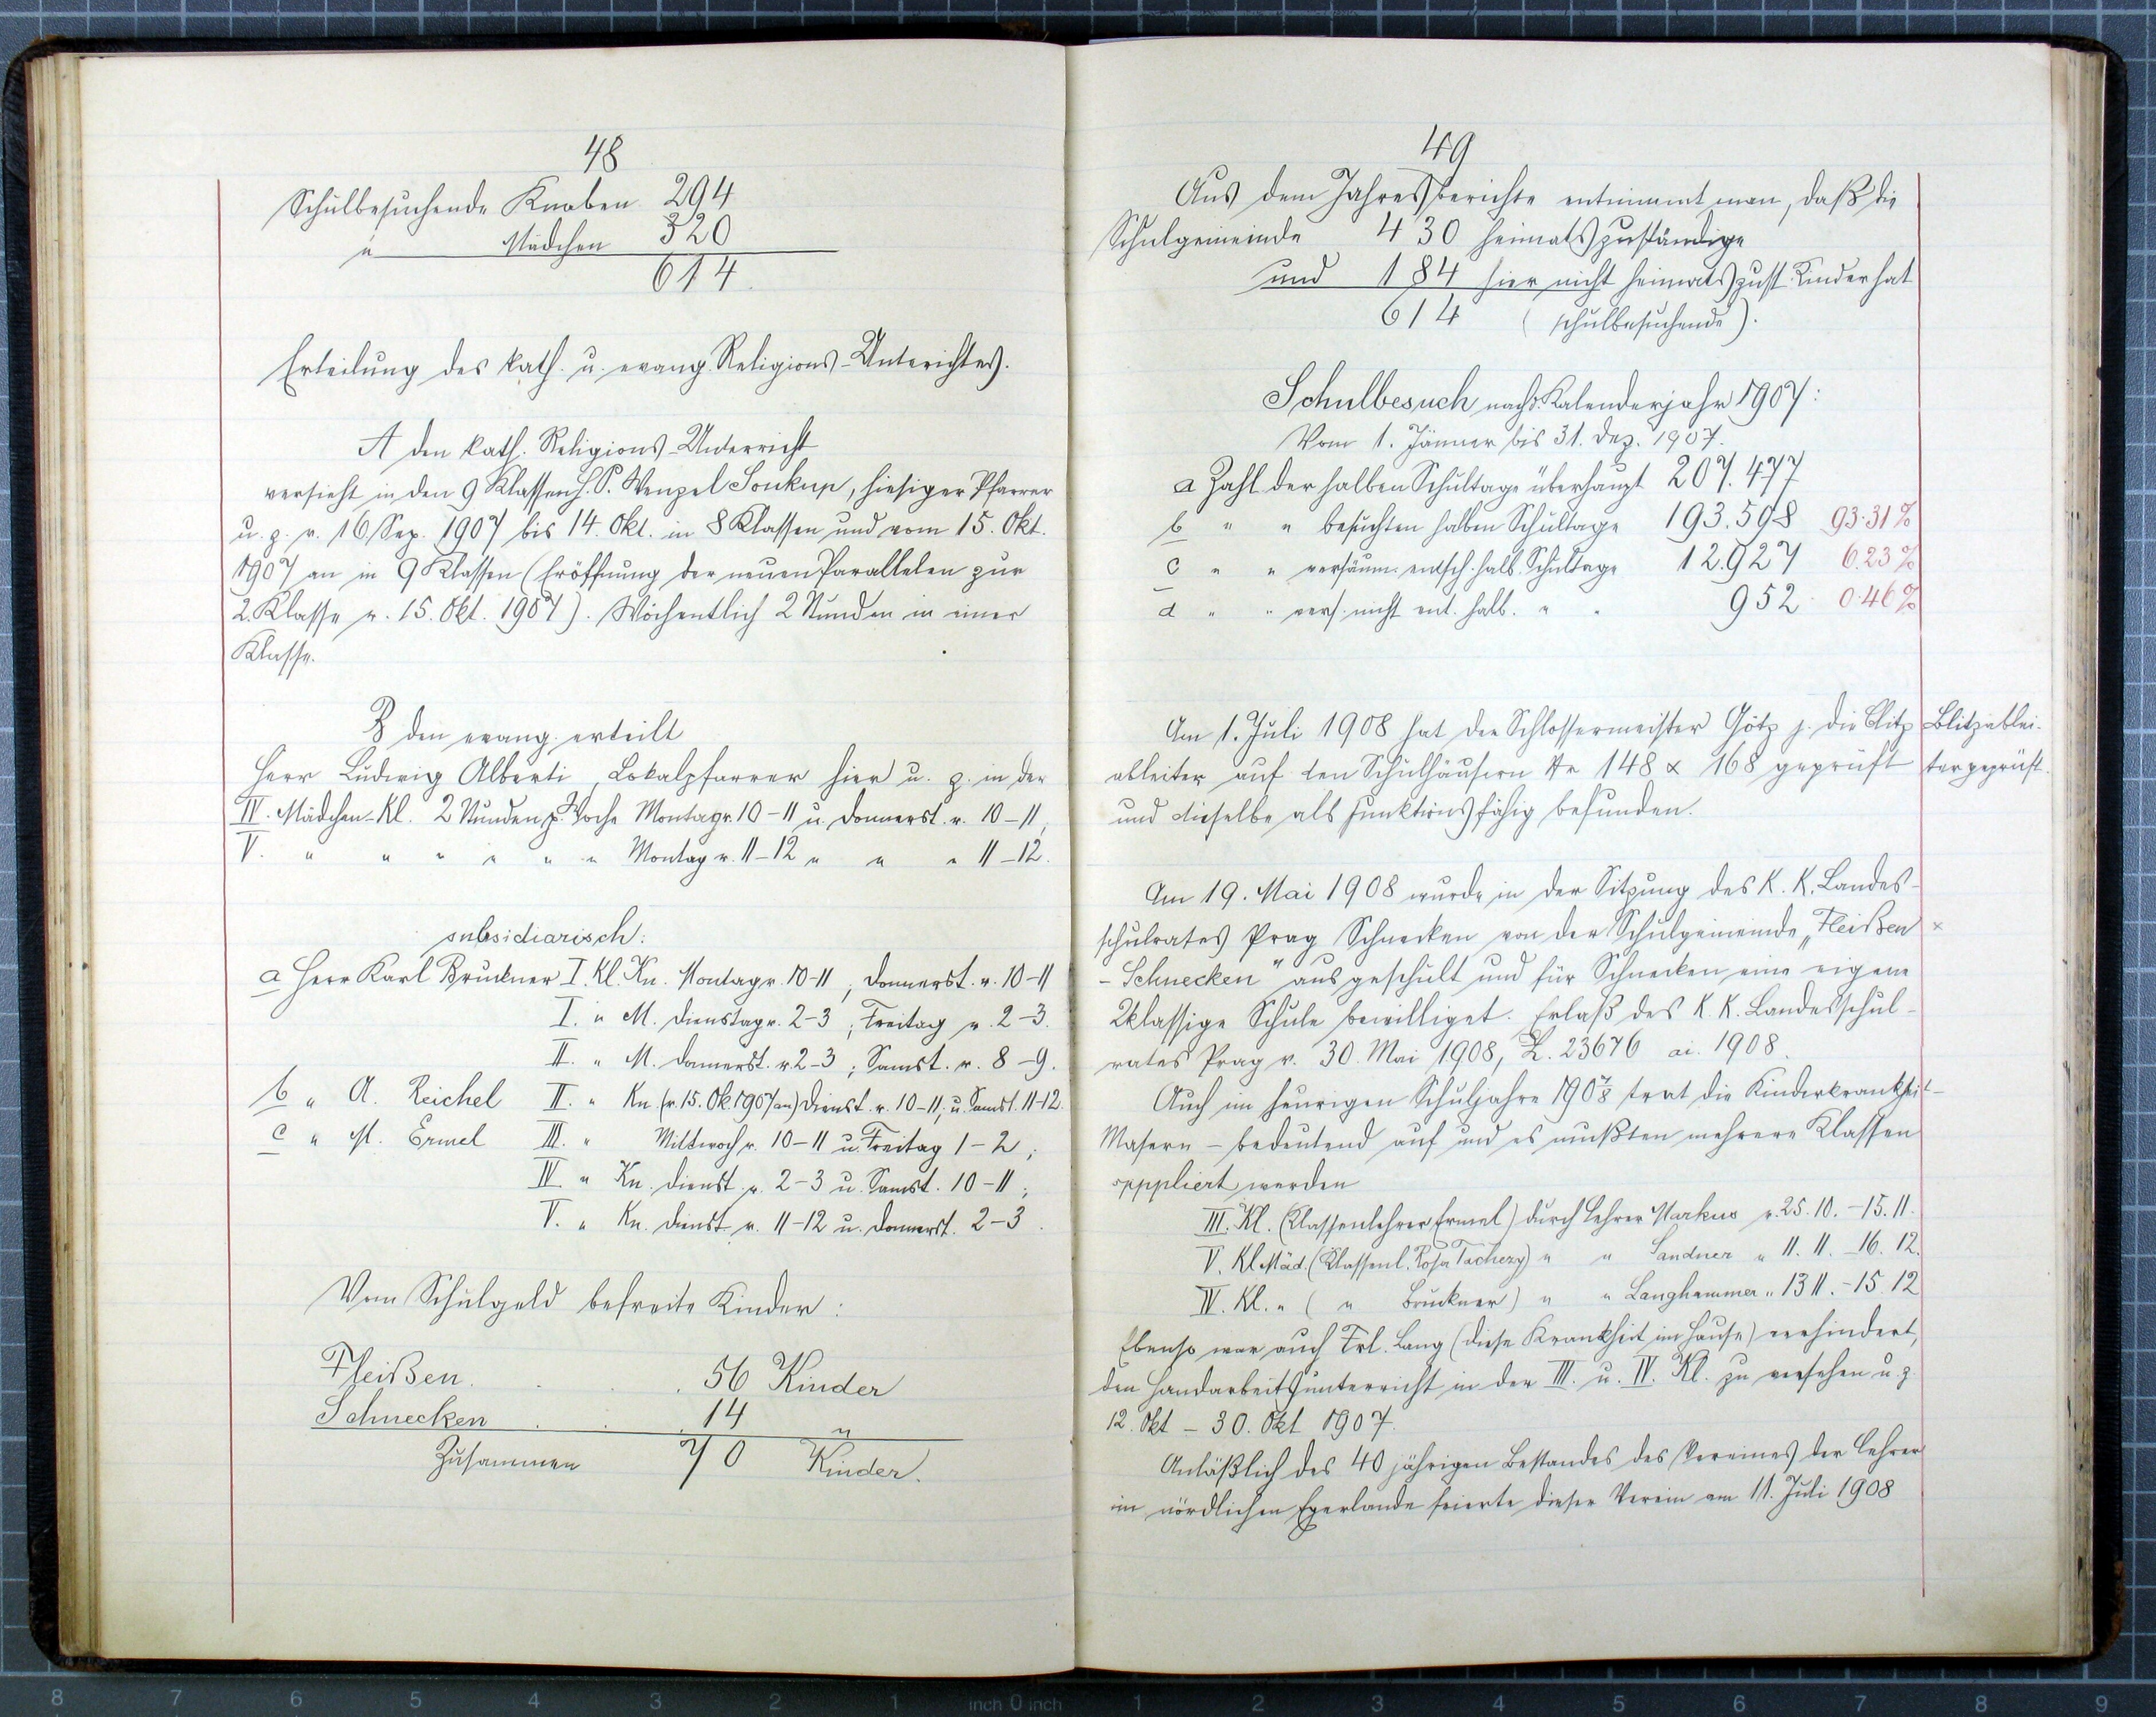 48
Schulbesuchende Knaben 294
" Mädchen 320
614.
Erteilung des kath. u. evang. Religions-Unterichtes.
A den kath. Religions-Unterricht
versieht in den 9 Klassen H. P. Wenzel Soukup, hiesiger Pfarrer
u. z. v. 16 Sep. 1907 bis 14. Okt. in 8 Klassen und vom 15. Okt.
1907 an in 9 Klassen (Eröffnung der neuen Parallelen zur
2. Klasse v. 15. Okt. 1907). Wöchentlich 2 Stunden in einer
Klasse.
B den evang. erteilt
Herr Ludwig Alberti, Lokalpfarrer hier u. z. in der
IV. Mädchen-Kl. 2 Stunden p. Woche Montag v. 10-11 u. Donnerst. v. 10-11,
V. " " " " " " Montag v. 11-12 " " " 11-12.
subsidiarisch:
a Herr Karl Bruckner I. Kl. Kn. Montag v. 10-11; Donnerst. v. 10-11
I. " M. Dienstag v. 2-3; Freitag v. 2-3.
II. " M. Donnerst. v. 2-3; Samst. v. 8-9.
b " A. Reichel II. " Kn. (v. 15. Ok. 1907 an) Dienst. v. 10-11; u. Samst. 11-12.
c " M. Ermel III. " Mittwoch v. 10-11 u. Freitag 1-2;
IV " Kn. Dienst. v. 2-3 u. Samst. 10-11;
V. " Kn. Dienst. v. 11-12 u. Donnerst. 2-3.
Vom Schulgeld befreite Kinder:
Fleißen . . 56 Kinder
Schnecken . . . 14 "
Zusammen 70 Kinder.
49
Aus dem Jahresberichte entnimmt man, daß die
Schulgemeinde 430 heimatszuständige
und 184 hier nicht heimatszust. Kinder hat
614 (schulbesuchende).
Schulbesuch nach d. Kalenderjahr 1907:
Vom 1. Jänner bis 31. Dez. 1907.
a Zahl der halben Schultage überhaupt 207.477
b " " besuchten halben Schultage 193.598 93.31%
c " " versäum. entsch. halb. Schultage 12.927 6.23%
d " " vers. nicht ent. halb. " " 952 0.46%
Am 1. Juli 1908 hat der Schlossermeister Götz j. die Blitz
ableiter auf den Schulhäusern Nr 148 & 168 geprüft
und dieselbe als funktionsfähig befunden.
Blitzablei-
ter geprüft.
Am 19. Mai 1908 wurde in der Sitzung des K. K. Landes-
schulrates Prag Schnecken von der Schulgemeinde „Fleißen ×
- Schnecken" ausgeschult und für Schnecken eine eigene
2klassige Schule bewilliget. Erlaß des K. K. Landesschul-
rates Prag v. 30. Mai 1908, Z. 23676 ai. 1908.
Auch im heurigen Schuljahre 1907/8 trat die Kinderkrankheit -
Masern - bedeutend auf und es mußten mehrere Klassen
werden
III. Kl. (Klassenlehrer Ermel) durch Lehrer Markus v. 25. 10. - 15. 11.
V. Kl Mäd. (Klassenl. Rosa Tachezy) " " Sandner " 11. 11. - 16. 12.
IV. Kl. " ( " Bruckner) " " Langhammer " 13 11. - 15. 12
Ebenso war auch Frl. Lang (diese Krankheit im Hause) verhindert,
den Handarbeitsunterricht in der III. u. IV. Kl. zu versehen u. z
12. Okt - 30. Okt 1907.
Anläßlich des 40 jährigen Bestandes des Vereines der Lehrer
im nördlichen Egerlande feierte dieser Verein am 11. Juli 1908